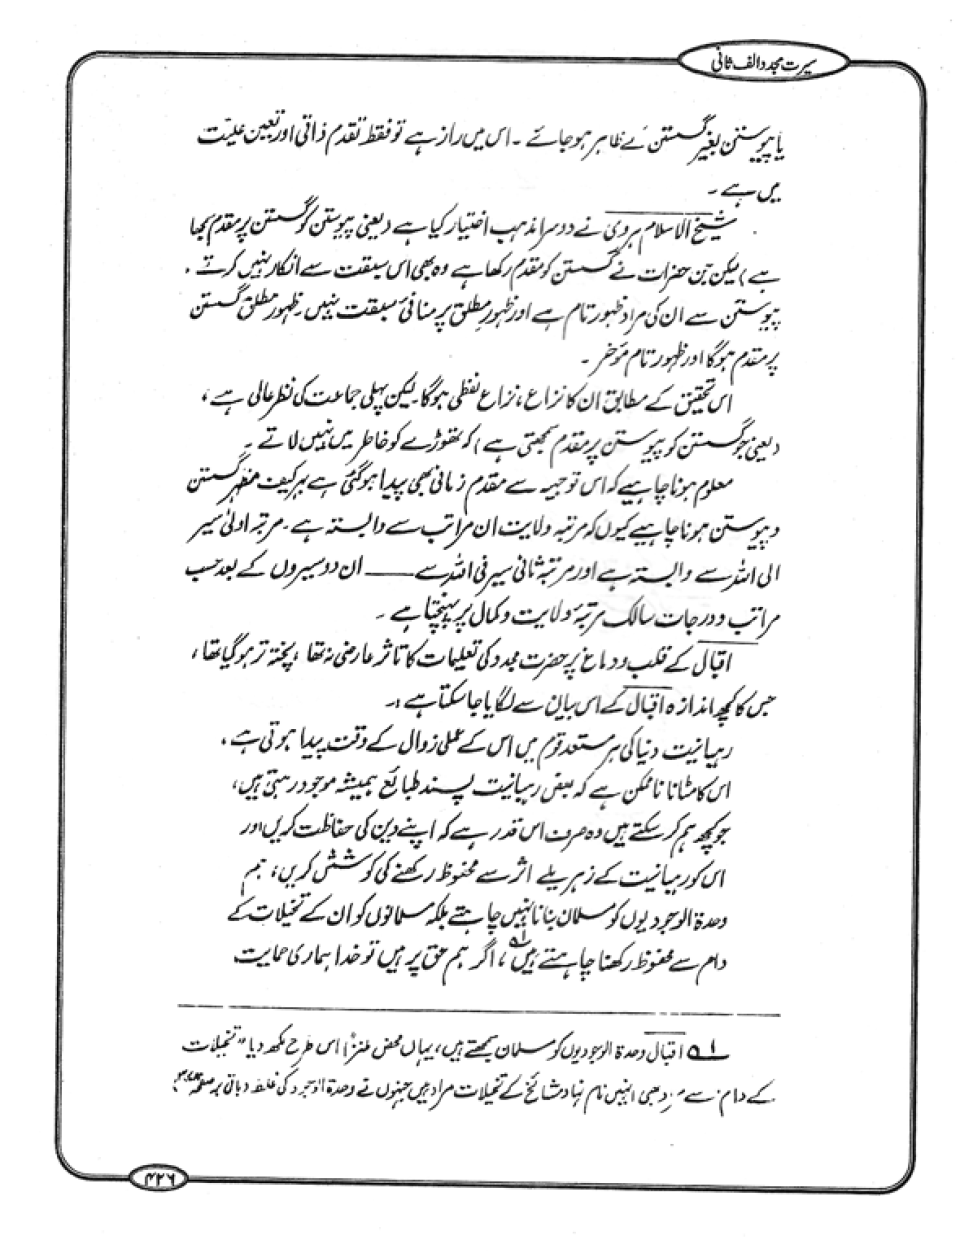 سیرت مجدد الف ثانی
یا پیوستن بغیر گسستن کے ظاہر ہو جائے ۔ اس میں راز ہے تو فقط تقدم ذاتی اور تعین علیت
میں ہے ۔
شیخ الاسلام ہروی نے دوسرا مذہب اختیار کیا ہے (یعنی پیوستن کو گسستن پر مقدم سمجھا
ہے) لیکن جن حضرات نے گسستن کو مقدم رکھا ہے وہ بھی اس سبقت سے انکار نہیں کرتے ۔
پیوستن سے ان کی مراد ظہور تام ہے اور ظہور مطلق پر منافئ سبقت نہیں ۔ ظہور مطلق گسستن
پر مقدم ہوگا اور ظہور تام مؤخر ۔
اس تحقیق کے مطابق ان کا نزاع ، نزاع لفظی ہوگا ۔ لیکن پہلی جماعت کی نظر عالی ہے ،
(یعنی جو گسستن کو پیوستن پر مقدم سمجھتی ہے) کہ تھوڑے کو خاطر میں نہیں لاتے ۔
معلوم ہونا چاہیے کہ اس توجیہ سے مقدم زمانی بھی پیدا ہو گئی ہے بہر کیف مظہر گسستن
و پیوستن ہونا چاہیے کیوں کہ مرتبۂ ولایت ان مراتب سے وابستہ ہے ۔ مرتبہ اولیٰ سیر
الی اللہ سے وابستہ ہے اور مرتبہ ثانی سیر فی اللہ سے ــــــ ان دو سیروں کے بعد حسب
مراتب و درجات سالک مرتبۂ ولایت و کمال پر پہنچتا ہے ۔
اقبال کے قلب و دماغ پر حضرت مجدد کی تعلیمات کا تاثر عارضی نہ تھا ، پختہ تر ہو گیا تھا ،
جس کا کچھ اندازہ اقبال کے اس بیان سے لگایا جا سکتا ہے :۔
رہبانیت دنیا کی ہر مستعد قوم میں اس کے عملی زوال کے وقت پیدا ہوتی ہے ،
اس کا مٹانا ناممکن ہے کہ بعض رہبانیت پسند طبائع ہمیشہ موجود رہتی ہیں ،
جو کچھ ہم کر سکتے ہیں وہ صرف اس قدر ہے کہ اپنے دین کی حفاظت کریں اور
اس کو رہبانیت کے زہریلے اثر سے محفوظ رکھنے کی کوشش کریں ، ہم
وحدۃ الوجودیوں کو مسلمان بنانا نہیں چاہتے بلکہ مسلمانوں کو ان کے تخیلات کے
دام سے محفوظ رکھنا چاہتے ہیں ۱؎ ، اگر ہم حق پر ہیں تو خدا ہماری حمایت
۱؎ اقبال وحدۃ الوجودیوں کو مسلمان سمجھتے ہیں ، یہاں محض طنزاً اس طرح لکھ دیا "تخیلات
کے دام" سے بھی انہیں نام نہاد مشائخ کے تخیلات مراد ہیں جنہوں نے وحدۃ الوجود کی غلط (باقی بر صفحہ
۴۲۶